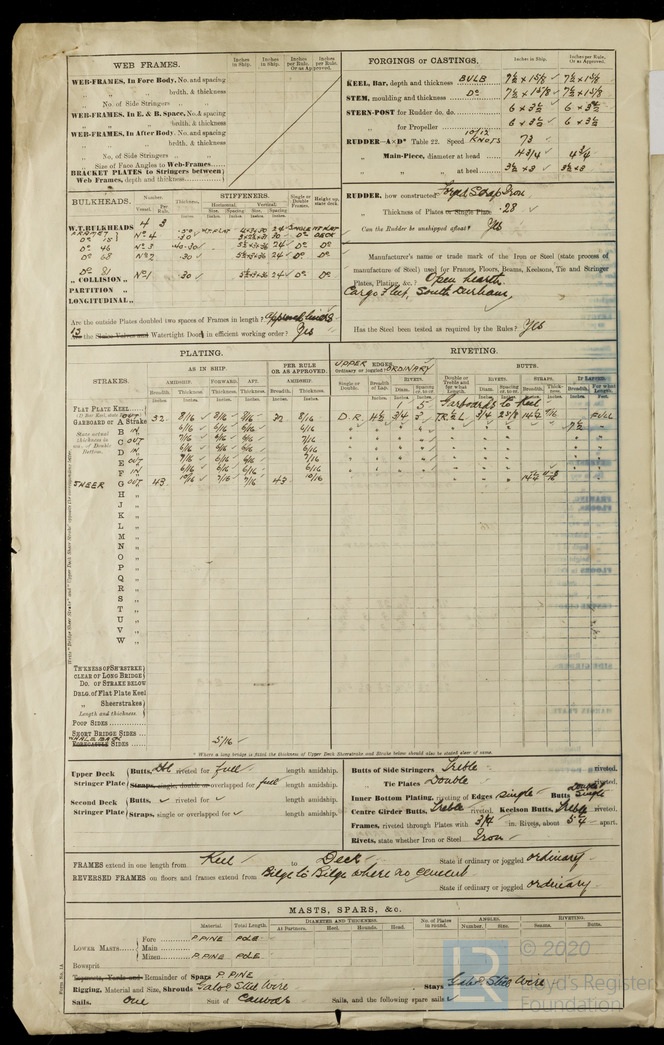 WEB FRAMES.
Inches in Ship. Inches in Ship. Inches per Rule, Or as Approved. Inches per Rule.
WEB-FRAMES, In Fore Body, No. and spacing
" " brdth. & thickness
No. of Side Stringers "
WEB-FRAMES, In E. & B. Space, No. & spacing
" " brdth. & thickness
WEB-FRAMES, In After Body, No. and spacing
" " brdth. & thickness
No. of Side Stringers "
Size of Face Angles to Web-Frames
BRACKET PLATES to Stringers between
Web Frames, depth and thickness
FORGINGS or CASTINGS.
Inches in Ship. Inches per Rule, Or as Approved.
KEEL, Bar, depth and thickness BULB 7½ × 15/8 7½ × 15/8
STEM, moulding and thickness Do 7½ × 15/8 7½ × 15/8
STERN-POST for Rudder do. do. 6 × 3½ 6 × 3½
" for Propeller 6 × 3½ 6 × 3½
RUDDER—A×D* Table 22. Speed 10/12 KNOTS 73
" Main-Piece, diameter at head 4 3/4 4 3/4
" " at heel 3½ × 3 3½ × 3
RUDDER, how constructed Forged Scrap Iron
" Thickness of Plates or Single Plate .28
Can the Rudder be unshipped afloat? Yes
BULKHEADS.
Number. Vessel. Per Rule. Thickness. STIFFENERS. Horizontal. Vertical. Size. Spacing Single or Double Frames. Height up, state deck.
W.T. BULKHEADS 4 3
No 4 .30
Do 46 No 3 .40.30 24 Do Do
Do 68 No 2 .30 24 Do Do
Do 81
" COLLISION " No 1 .30 24 Do Do
PARTITION "
LONGITUDINAL "
Are the outside Plates doubled two spaces of Frames in length? Approved liners
13
Are the Sluice Valves and Watertight Doors in efficient working order? Yes
Manufacturer's name or trade mark of the Iron or Steel (state process of
manufacture of Steel) used for Frames, Floors, Beams, Keelsons, Tie and Stringer
Plates, Plating, &c.? Open hearth.
Cargo Fleet, South Durham,
Has the Steel been tested as required by the Rules? Yes
PLATING.
RIVETING.
AS IN SHIP. PER RULE OR AS APPROVED.
STRAKES. AMIDSHIP. FORWARD. AFT. AMIDSHIP.
Breadth. Thickness. Thickness. Thickness. Breadth. Thickness.
UPPER EDGES. Ordinary or joggled? ORDINARY BUTTS.
Single or Double. Breadth of Lap. RIVETS. Diam. Spacing cr. to cr. Double or Treble and for what Length. RIVETS. Diam. Spacing cr. to cr. STRAPS. Breadth. Thickness. IF LAPPED. Breadth. For what Length.
FLAT PLATE KEEL 5 Garboards to Keel
GARBOARD or A Strake OUT 32 8/16 8/16 8/16 32 8/16 D.R. 4½ 3/4 3 TR & L 3/4 2 7/8 14½ 9/16 FULL
B IN 6/16 6/16 6/16 6/16 7½
C OUT 7/16 6/16 6/16 7/16
D IN 6/16 6/16 6/16 6/16
E OUT 7/16 6/16 6/16 7/16
F IN 6/16 6/16 6/16 6/16
SHEER G OUT 43 10/16 7/16 7/16 43 10/16
H "
J "
K "
L "
M "
N "
O "
P "
Q "
R "
S "
T "
U "
V "
W "
THICKNESS OF SH'RSTRKE
CLEAR OF LONG BRIDGE
DO. OF STRAKE BELOW
DBLG. of Flat Plate Keel
" Sheerstrakes
Length and thickness.
POOP SIDES
SHORT BRIDGE SIDES
WHALE BACK
FORECASTLE SIDES 5/16
* Where a long bridge is fitted the thickness of Upper Deck Sheerstrake and Strake below should also be stated clear of same.
Upper Deck Stringer Plate
Butts, Dbl riveted for full length amidship.
Straps, single, double or overlapped for full length amidship.
Second Deck Stringer Plate
Butts, riveted for length amidship.
Straps, single or overlapped for length amidship.
Butts of Side Stringers Treble riveted.
" Tie Plates Double riveted.
Inner Bottom Plating, riveting of Edges Single Butts Double Single
Centre Girder Butts, Treble riveted. Keelson Butts, Treble riveted.
Frames, riveted through Plates with 3/4 in. Rivets, about 5¼ apart.
Rivets, state whether Iron or Steel Iron
FRAMES extend in one length from Keel to Deck State if ordinary or joggled ordinary
REVERSED FRAMES on floors and frames extend from Bilge to Bilge where no cement
State if ordinary or joggled ordinary
MASTS, SPARS, &c.
Material. Total Length. DIAMETER AND THICKNESS. At Partners. Heel. Hounds. Head. No. of Plates in round. ANGLES. Number. Size. RIVETING. Seams. Butts.
LOWER MASTS Fore P. PINE POLE
Main
Mizen P. PINE POLE
Bowsprit
Topmasts, Yards and Remainder of Spars P. PINE
Rigging, Material and Size, Shrouds Galvd Steel Wire Stays Galvd Steel Wire
Sails. One Suit of Canvas Sails, and the following spare sails
Form No. 1A
© 2020
Lloyd's Register
Foundation